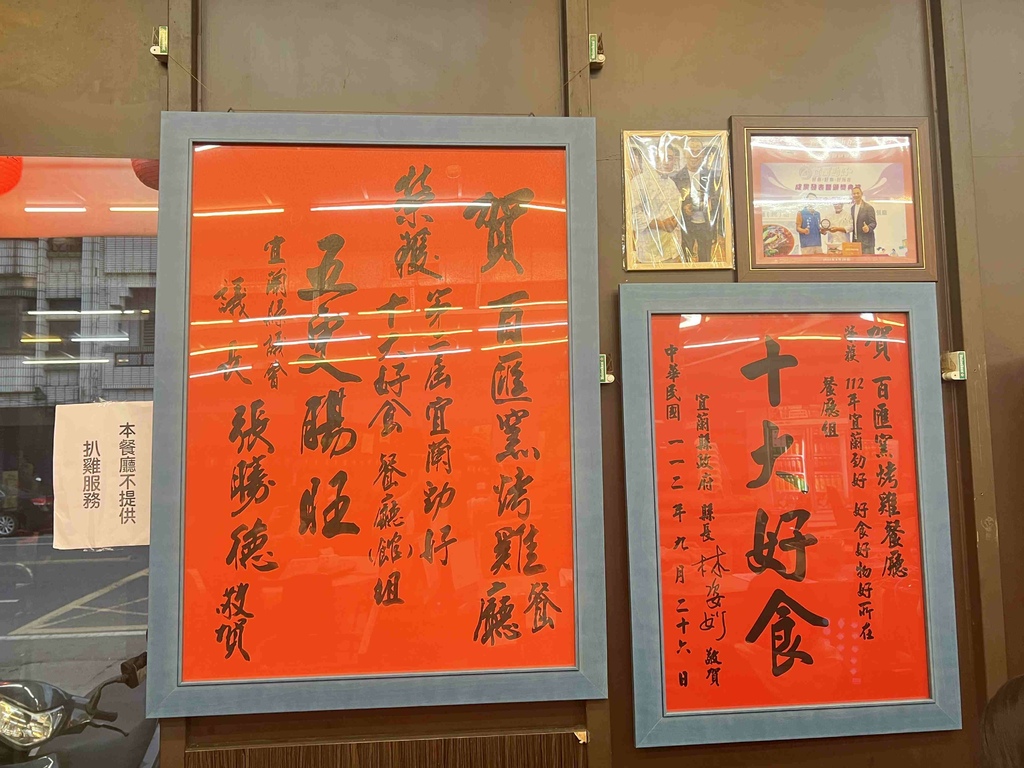 賀 百匯窯烤雞餐廳
榮獲 第二屆宜蘭勁好
十大好食 餐廳(館)組
五更腸旺
宜蘭縣議會
議長 張勝德 敬賀
賀 百匯窯烤雞餐廳
榮獲 112年宜蘭勁好 好食好物好所在
餐廳組
十大好食
宜蘭縣政府 縣長 林姿妙 敬賀
中華民國一一二年九月二十六日
本餐廳不提供
扒雞服務